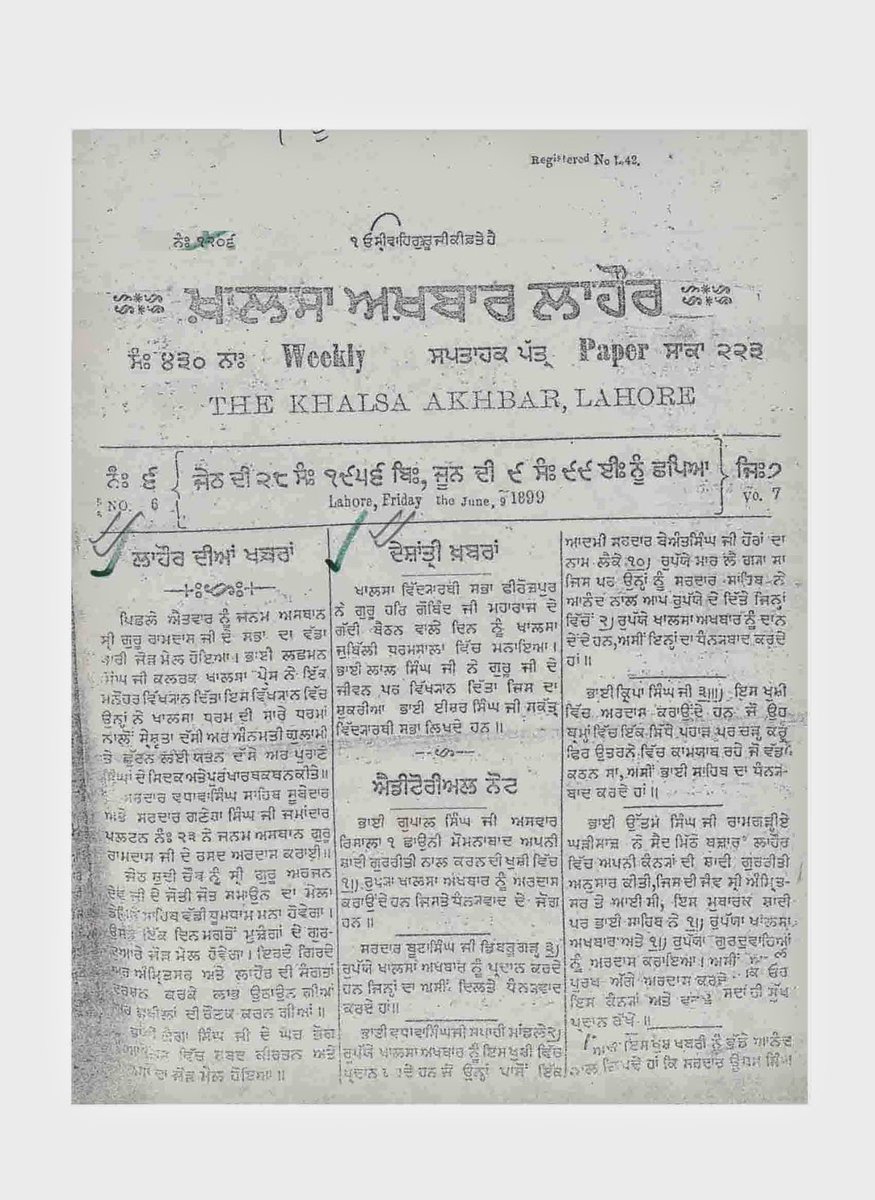 Registered No L.42.
ਨੰਃ ੧੨੦੬
੧ ਓ ਸ੍ਰੀਵਾਹਿਗੁਰੂਜੀਕੀਫ਼ਤੇ ਹੈ
ਖ਼ਾਲਸਾ ਅਖ਼ਬਾਰ ਲਾਹੌਰ
ਸੰਃ ੪੩੦ ਨਾਃ Weekly ਸਪਤਾਹਕ ਪੱਤ੍ਰ Paper ਸਾਕਾ ੨੨੩
THE KHALSA AKHBAR, LAHORE
ਨੰਃ ੬
ਜੇਠ ਦੀ ੨੮ ਸੰਃ ੧੯੫੬ ਬਿਃ, ਜੂਨ ਦੀ ੯ ਸੰਃ ੯੯ ਈਃ ਨੂੰ ਛਪਿਆ
ਜਿਃ ੭
NO. 6
Lahore, Friday the June, 9 1899
Vo. 7
ਲਾਹੌਰ ਦੀਆਂ ਖ਼ਬਰਾਂ
ਪਿਛਲੇ ਐਤਵਾਰ ਨੂੰ ਜਨਮ ਅਸਥਾਨ
ਸ੍ਰੀ ਗੁਰੂ ਰਾਮਦਾਸ ਜੀ ਦੇ ਸਭਾ ਦਾ ਵੱਡਾ
ਭਾਰੀ ਜੋੜ ਮੇਲ ਹੋਇਆ। ਭਾਈ ਲਛਮਨ
ਸਿੰਘ ਜੀ ਕਲਰਕ ਖਾਲਸਾ ਪ੍ਰੈਸ ਨੇ ਇੱਕ
ਮਨੋਹਰ ਵਿਖ੍ਯਾਨ ਦਿੱਤਾ ਇਸ ਵਿੱਖ੍ਯਾਨ ਵਿੱਚ
ਉਨ੍ਹਾਂ ਨੇ ਖਾਲਸਾ ਧਰਮ ਦੀ ਸਾਰੇ ਧਰਮਾਂ
ਨਾਲੋਂ ਸ੍ਰੇਸ਼ਤਾ ਦੱਸੀ ਅਰ ਅੰਨਮਤੀ ਗੁਲਾਮੀ
ਤੇ ਛੁੱਟਨ ਲਈ ਯਤਨ ਦੱਸੇ ਅਰ ਪੁਰਾਣੇ
ਸਿੰਘਾਂ ਦੇ ਸਿਦਕ ਅਤੇ ਪਰੁਖਾਰਥ ਕਥਨ ਕੀਤੇ॥
ਸਰਦਾਰ ਵਧਾਵਾਸਿੰਘ ਸਾਹਿਬ ਸੂਬੇਦਾਰ
ਅਤੇ ਸਰਦਾਰ ਗਣੇਸ਼ਾ ਸਿੰਘ ਜੀ ਜਮਾਂਦਾਰ
ਪਲਟਨ ਨੰਃ ੨੩ ਨੇ ਜਨਮ ਅਸਥਾਨ ਗੁਰੂ
ਰਾਮਦਾਸ ਜੀ ਦੇ ਰਸਦ ਅਰਦਾਸ ਕਰਾਈ॥
ਜੇਠ ਸੁਦੀ ਚੌਥ ਨੂੰ ਸ੍ਰੀ ਗੁਰੂ ਅਰਜਨ
ਦੇਵ ਜੀ ਦੇ ਜੋਤੀ ਜੋਤ ਸਮਾਉਨ ਦਾ ਮੇਲਾ
ਸਾਹਿਬ ਵੱਡੀ ਧੂਮਧਾਮ ਮਨਾ ਹੋਵੇਗਾ।
ਇੱਕ ਦਿਨ ਮਗਰੋਂ ਮੁਜ਼ੰਗਾਂ ਦੇ ਗੁਰ-
ਦੁਆਰੇ ਜੋੜ ਮੇਲ ਹੋਵੇਗਾ। ਇਰਦੇ ਗਿਰਦੇ
ਅਰ ਅੰਮ੍ਰਿਤਸਰ ਅਤੇ ਲਾਹੌਰ ਦੀ ਸੰਗਤਾਂ
ਦਰਸ਼ਨ ਕਰਕੇ ਲਾਭ ਉਠਾਉਨ ਗੀਆਂ
ਦੀ ਰੌਣਕ ਕਰਨ ਗੀਆਂ॥
ਸਿੰਘ ਜੀ ਦੇ ਘਰ ਭੋਗ
ਵਿੱਚ ਸ਼ਬਦ ਕੀਰਤਨ ਅਤੇ
ਦਾ ਜੋੜ ਮੇਲ ਹੋਇਆ॥
ਦੇਸ਼ਾਂਤ੍ਰੀ ਖ਼ਬਰਾਂ
ਖਾਲਸਾ ਵਿੱਦ੍ਯਾਰਥੀ ਸਭਾ ਫੀਰੋਜ਼ਪੁਰ
ਨੇ ਗੁਰੂ ਹਰਿ ਗੋਬਿੰਦ ਜੀ ਮਹਾਰਾਜ ਦੇ
ਗੱਦੀ ਬੈਠਨ ਵਾਲੇ ਦਿਨ ਨੂੰ ਖਾਲਸਾ
ਜੁਬਿੱਲੀ ਧਰਮਸਾਲਾ ਵਿੱਚ ਮਨਾਇਆ।
ਭਾਈ ਲਾਲ ਸਿੰਘ ਜੀ ਨੇ ਗੁਰੂ ਜੀ ਦੇ
ਜੀਵਨ ਪਰ ਵਿੱਖ੍ਯਾਨ ਦਿੱਤਾ ਜਿਸ ਦਾ
ਸ਼ੁਕਰੀਆ ਭਾਈ ਈਸ਼ਰ ਸਿੰਘ ਜੀ ਸਕੱਤ੍ਰ
ਵਿੱਦ੍ਯਾਰਥੀ ਸਭਾ ਲਿਖਦੇ ਹਨ॥
ਐਡੀਟੋਰੀਅਲ ਨੋਟ
ਭਾਈ ਗੁਪਾਲ ਸਿੰਘ ਜੀ ਅਸਵਾਰ
ਰਿਸਾਲਾ ੧ ਛਾਉਨੀ ਮੋਮਨਾਬਾਦ ਅਪਨੀ
ਸ਼ਾਦੀ ਗੁਰਰੀਤੀ ਨਾਲ ਕਰਨ ਦੀ ਖੁਸ਼ੀ ਵਿੱਚ
੧।) ਰੁਪਯਾ ਖਾਲਸਾ ਅਖਬਾਰ ਨੂੰ ਅਰਦਾਸ
ਕਰਾਉਂਦੇ ਹਨ ਜਿਸਤੇ ਧੰਨ੍ਯਵਾਦ ਦੇ ਜੋਗ
ਹਨ॥
ਸਰਦਾਰ ਬੂਟਾਸਿੰਘ ਜੀ ਡਿਬਰੂਗੜ੍ਹ ੩)
ਰੁਪੱਯੇ ਖਾਲਸਾ ਅਖਬਾਰ ਨੂੰ ਪ੍ਰਦਾਨ ਕਰਦੇ
ਹਨ ਜਿਨ੍ਹਾਂ ਦਾ ਅਸੀਂ ਦਿਲਤੇ ਧੰਨਯਵਾਦ
ਕਰਦੇ ਹਾਂ॥
ਭਾਈ ਵਧਾਵਾਸਿੰਘ ਜੀ ਸਪਾਹੀ ਮਾਂਡਲੇ ੨)
ਰੁਪੱਯੇ ਖਾਲਸਾ ਅਖਬਾਰ ਨੂੰ ਇਸ ਖੁਸ਼ੀ ਵਿੱਚ
ਪ੍ਰਦਾਨ ਹਨ ਜੋ ਉਨ੍ਹਾਂ ਪਾਸੋਂ ਇੱਕ
ਆਦਮੀ ਸਰਦਾਰ ਬੇਅੰਤਸਿੰਘ ਜੀ ਹੋਰਾਂ ਦਾ
ਨਾਮ ਲੈਕੇ ੧੦) ਰੁਪੱਯੇ ਮਾਰ ਲੈ ਗਯਾ ਸਾ
ਜਿਸ ਪਰ ਉਨ੍ਹਾਂ ਨੂੰ ਸਰਦਾਰ ਸਾਹਿਬ ਨੇ
ਆਨੰਦ ਨਾਲ ਆਪ ਰੁਪੱਯੇ ਦੇ ਦਿੱਤੇ ਜਿਨ੍ਹਾਂ
ਵਿੱਚੋਂ ੨) ਰੁਪੱਯੇ ਖਾਲਸਾ ਅਖਬਾਰ ਨੂੰ ਦਾਨ
ਦੇਂਦੇ ਹਨ, ਅਸੀਂ ਇਨ੍ਹਾਂ ਦਾ ਧੰਨਯਬਾਦ ਕਰਦੇ
ਹਾਂ॥
ਭਾਈ ਕ੍ਰਿਪਾ ਸਿੰਘ ਜੀ ੩॥) ਇਸ ਖੁਸ਼ੀ
ਵਿੱਚ ਅਰਦਾਸ ਕਰਾਉਂਦੇ ਹਨ ਜੋ ਉਹ
ਬ੍ਰਮ੍ਹਾਂ ਵਿੱਚ ਇੱਕ ਸਿੱਧੇ ਪਹਾੜ ਪਰ ਚੜ੍ਹ ਕਰੂ
ਫਿਰ ਉਤਰਨੇ ਵਿੱਚ ਕਾਮਯਾਬ ਰਹੇ ਜੋ ਵੱਡਾ
ਕਠਨ ਸਾ, ਅਸੀਂ ਭਾਈ ਸਾਹਿਬ ਦਾ ਧੰਨਯ-
ਬਾਦ ਕਰਦੇ ਹਾਂ॥
ਭਾਈ ਉੱਤਮ ਸਿੰਘ ਜੀ ਰਾਮਗੜ੍ਹੀਏ
ਘੜੀਸਾਜ਼ ਨੇ ਸੈਦ ਮਿੱਠੇ ਬਜ਼ਾਰ ਲਾਹੌਰ
ਵਿੱਚ ਅਪਨੀ ਕੰਨਯਾਂ ਦੀ ਸ਼ਾਦੀ ਗੁਰਰੀਤੀ
ਅਨੁਸਾਰ ਕੀਤੀ, ਜਿਸਦੀ ਜੰਞ ਸ੍ਰੀ ਅੰਮ੍ਰਿਤ-
ਸਰ ਤੇ ਆਈ ਸੀ, ਇਸ ਮੁਬਾਰਕ ਸ਼ਾਦੀ
ਪਰ ਭਾਈ ਸਾਹਿਬ ਨੇ ੧) ਰੁਪੱਯਾ ਖਾਲਸਾ
ਅਖਬਾਰ ਅਤੇ ੧) ਰੁਪੱਯਾ ਗੁਰਦੁਵਾਰਿਆਂ
ਨੂੰ ਅਰਦਾਸ ਕਰਾਇਆ। ਅਸੀਂ
ਪੁਰਖ ਅੱਗੇ ਅਰਦਾਸ ਕਰਦੇ ਕਿ ਓਹ
ਇਸ ਕੰਨਯਾਂ ਅਤੇ ਸਦਾਂ ਹੀ ਸੁੱਖ
ਪ੍ਰਦਾਨ ਰੱਖੇ॥
ਇਸ ਖੁਸ਼ ਖਬਰੀ ਨੂੰ ਵੱਡੇ ਆਨੰਦ
ਨਾਲ ਹਾਂ ਕਿ ਸਰਦਾਰ ਉੱਤਮ ਸਿੰਘ